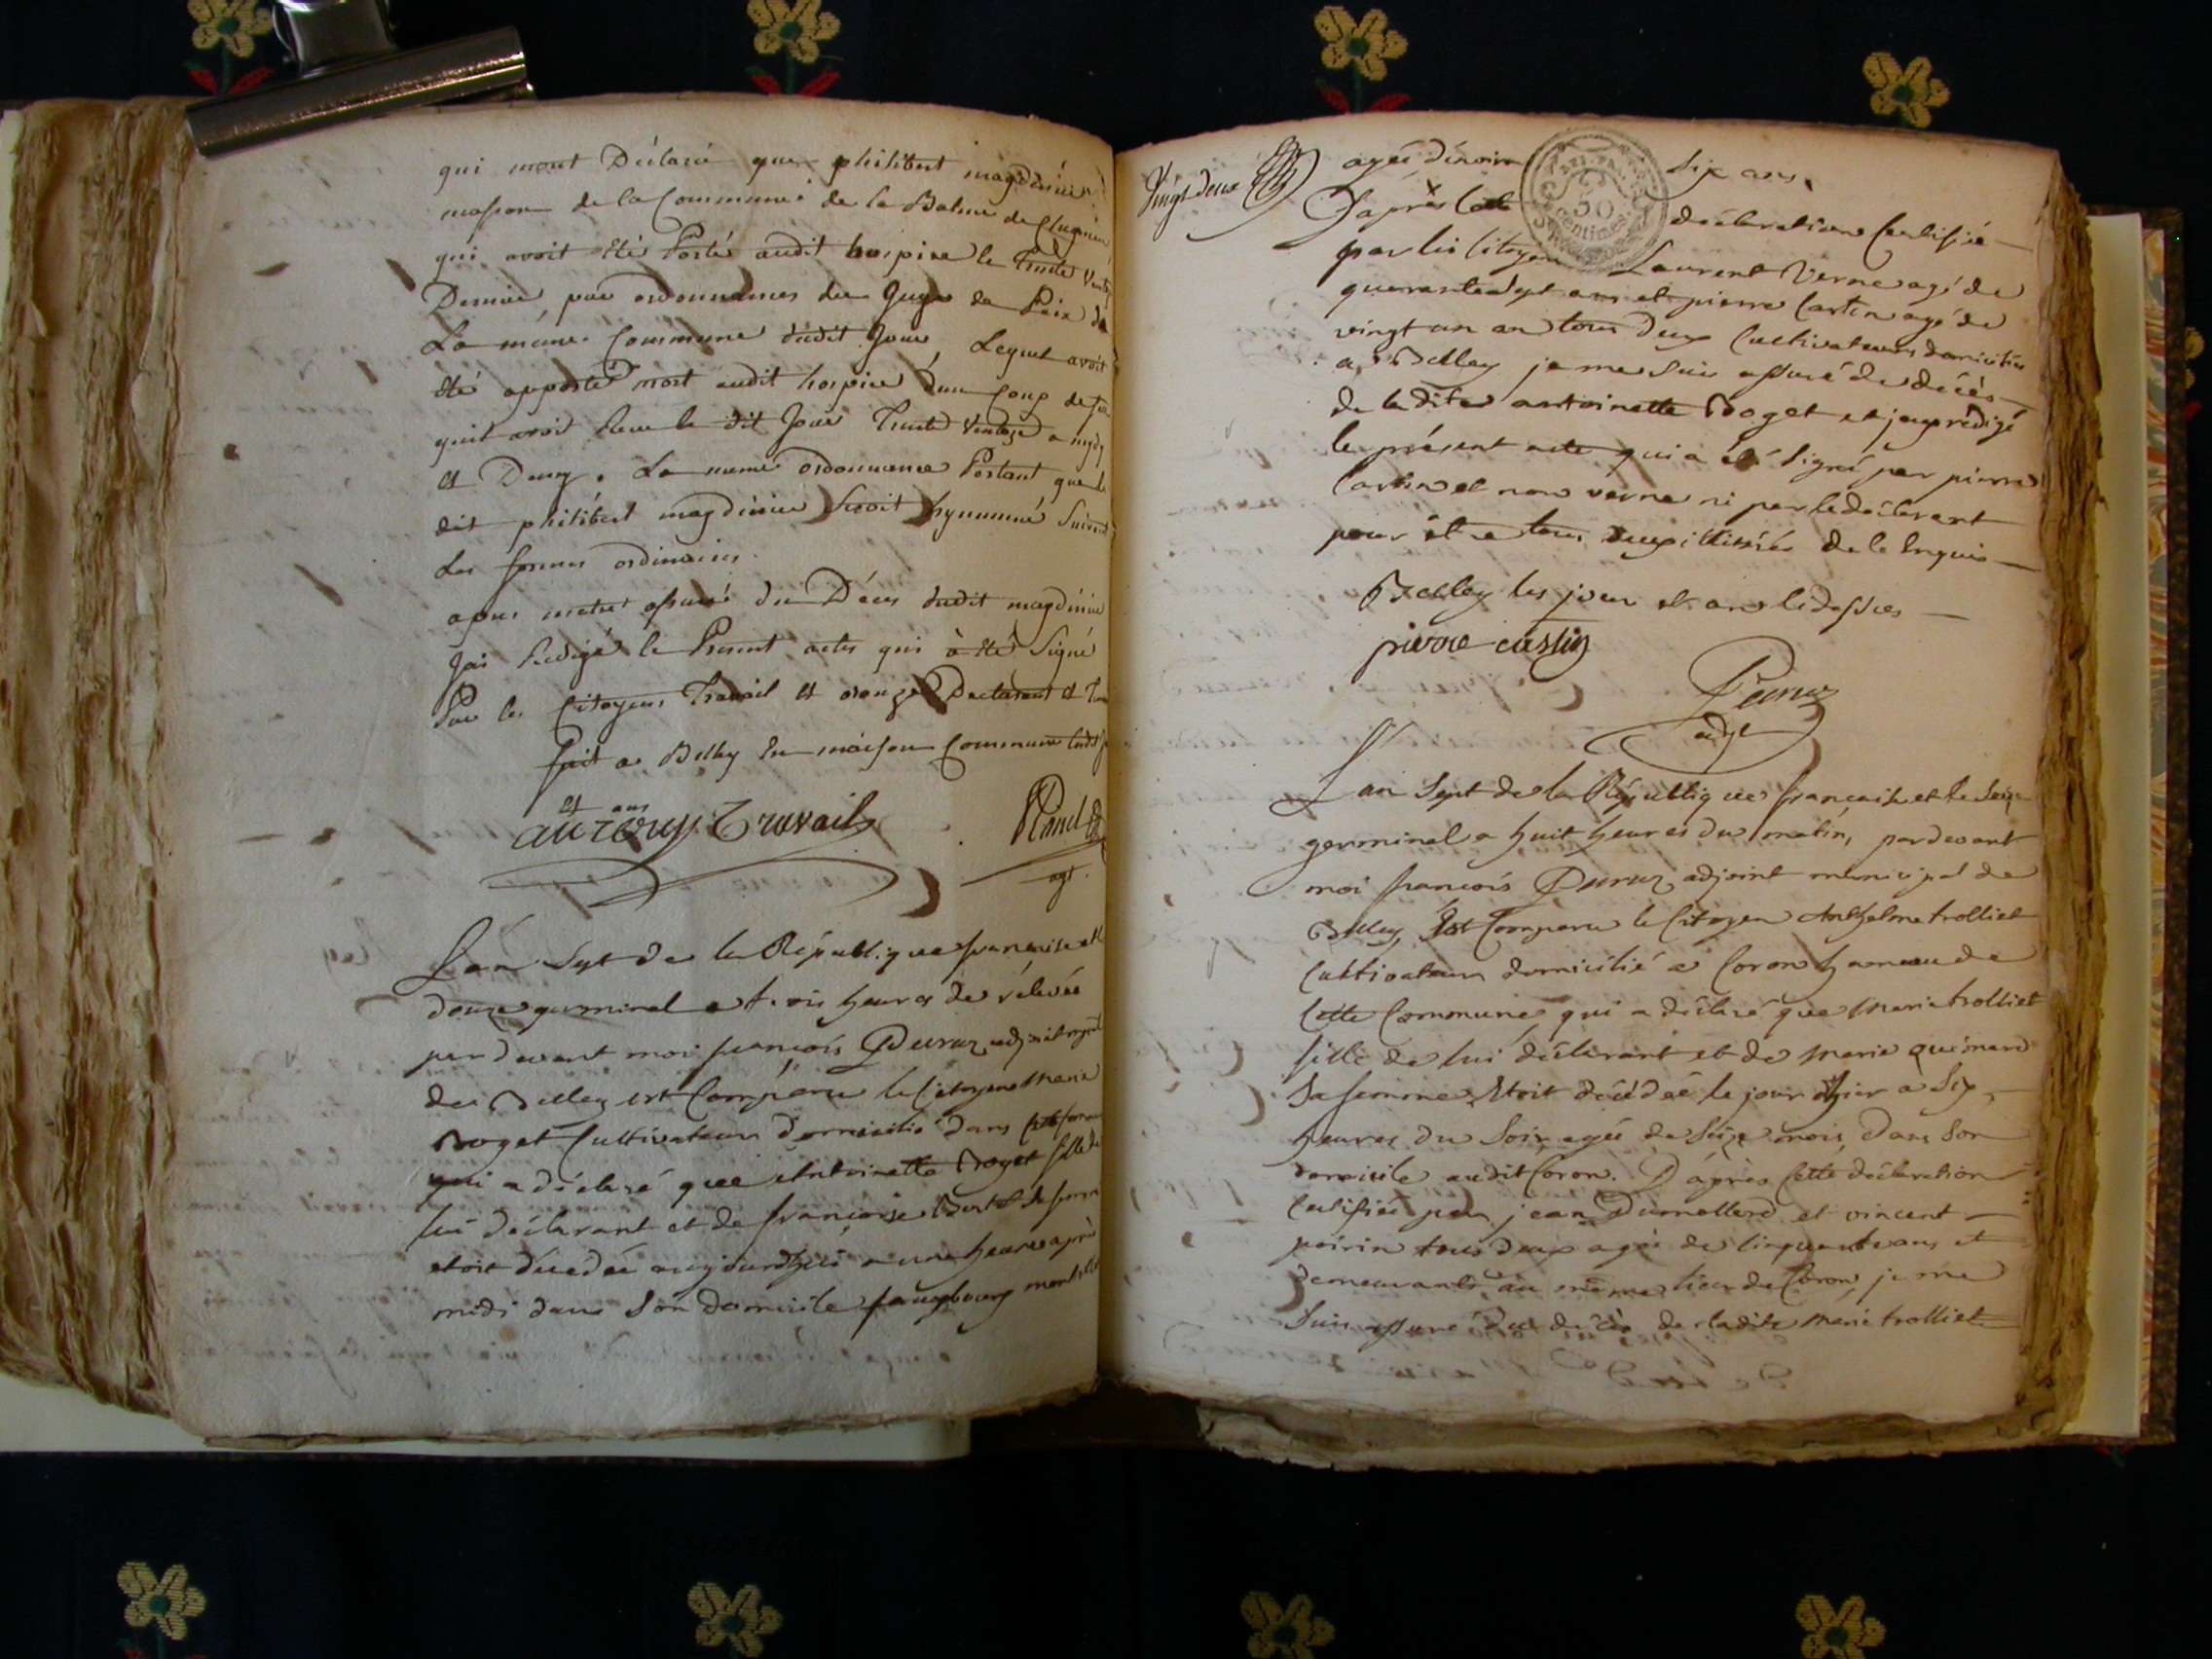 qui mont Déclaré que philibert magdinier
masson de la Commune de la Balme de
qui avoit été Porté audit hospice le trente
Dernier par ordonnances du Juge de Paix de
La même Commune dudit Jour, Lequel avoit
été apporté mort audit hospice dun Coup de
quil avoit Recu le dit Jour Trente Ventose a
et Demy. La même ordonnance Portant que le
dit philibert magdinier Seroit hynumué Suivant
Les formes ordinaires.
apres metre assuré du Déces dudit magdinier
Jai Redigé le Present acte qui à été Signé
Par les Citoyens Travail et Declarant et
fait a Belley En maison Commune
et ans
Travail
agt.
Lan Sept de la République francaise et le
douze germinal a trois heures de rélevée
par devant moi francois adjoint
de Belley est Comparu le Citoyen
Boget Cultivateur domicilié dans cette
qui a déclaré que Antoinette Boget fille de
lui déclarant et de francoise
etoit décedée aujourdhui a une heure après
midi dans Son Domicile fauxbourg
Vingt deux
agée dénviron Six ans.
D'après Cette déclaration Certifiée
par les Citoyens Laurent Verne agé de
quarante sept ans et pierre Castin agé de
vingt un an tous deux Cultivateurs domiciliés
a Belley je me Suis assuré du décès
de ladite antoinette Boget et jeay rédigé
le présent acte qui a été Signé par pierre
Castin et non verne ni par le déclarant
pour etre tous deux illitérés de le Enquis
Belley les jour et an cidessus
pierre castin
adjt
50 Centimes
Lan Sept de la République française et le Seize
germinal a huit heures du matin, pardevant
moi francois adjoint municipal de
Belley, Est Comparu le Citoyen Anthelme trolliet
Cultivateur domicilié a Coron hameau de
Cette Commune qui a déclaré que Marie trolliet
fille de lui déclarant et de Marie quinard
Sa femme, Etoit décédée le jour d'hier a Six
heures du Soir agée de Seize mois, dans Son
domicile audit Coron. D'après Cette déclaration
Certifiée par jean Dumollard et vincent
poirin tous deux agés de Cinquante ans et
demeurants au même lieu de Coron, je me
Suis assuré du décès de ladite Marie trolliet